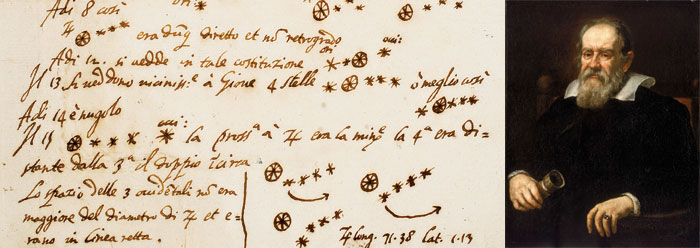 Adi 8 così
♃ era dūq diretto et nō retrogrado
ori: occi:
Adi 12. si vedde in tale costituzione
Il 13 si veddono viciniss.e à Giove 4 stelle ò meglio così
Adi 14 è nugolo
occi:
Il 15 la pross.a à ♃ era la min.e la 4.a era di-
stante dalla 3.a il doppio īcirca
Lo spazio delle 3 occidētali nō era
maggiore del diametro di ♃ et e-
rano in linea retta.
♃ long. 71.38 lat. 1.13